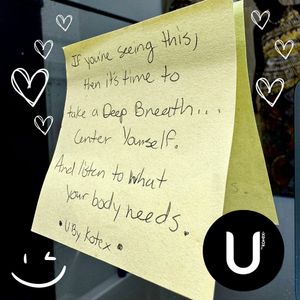 If you're seeing this,
then it's time to
take a Deep Breath...
Center Yourself.
And listen to what
your body needs.
• U By Kotex •
U